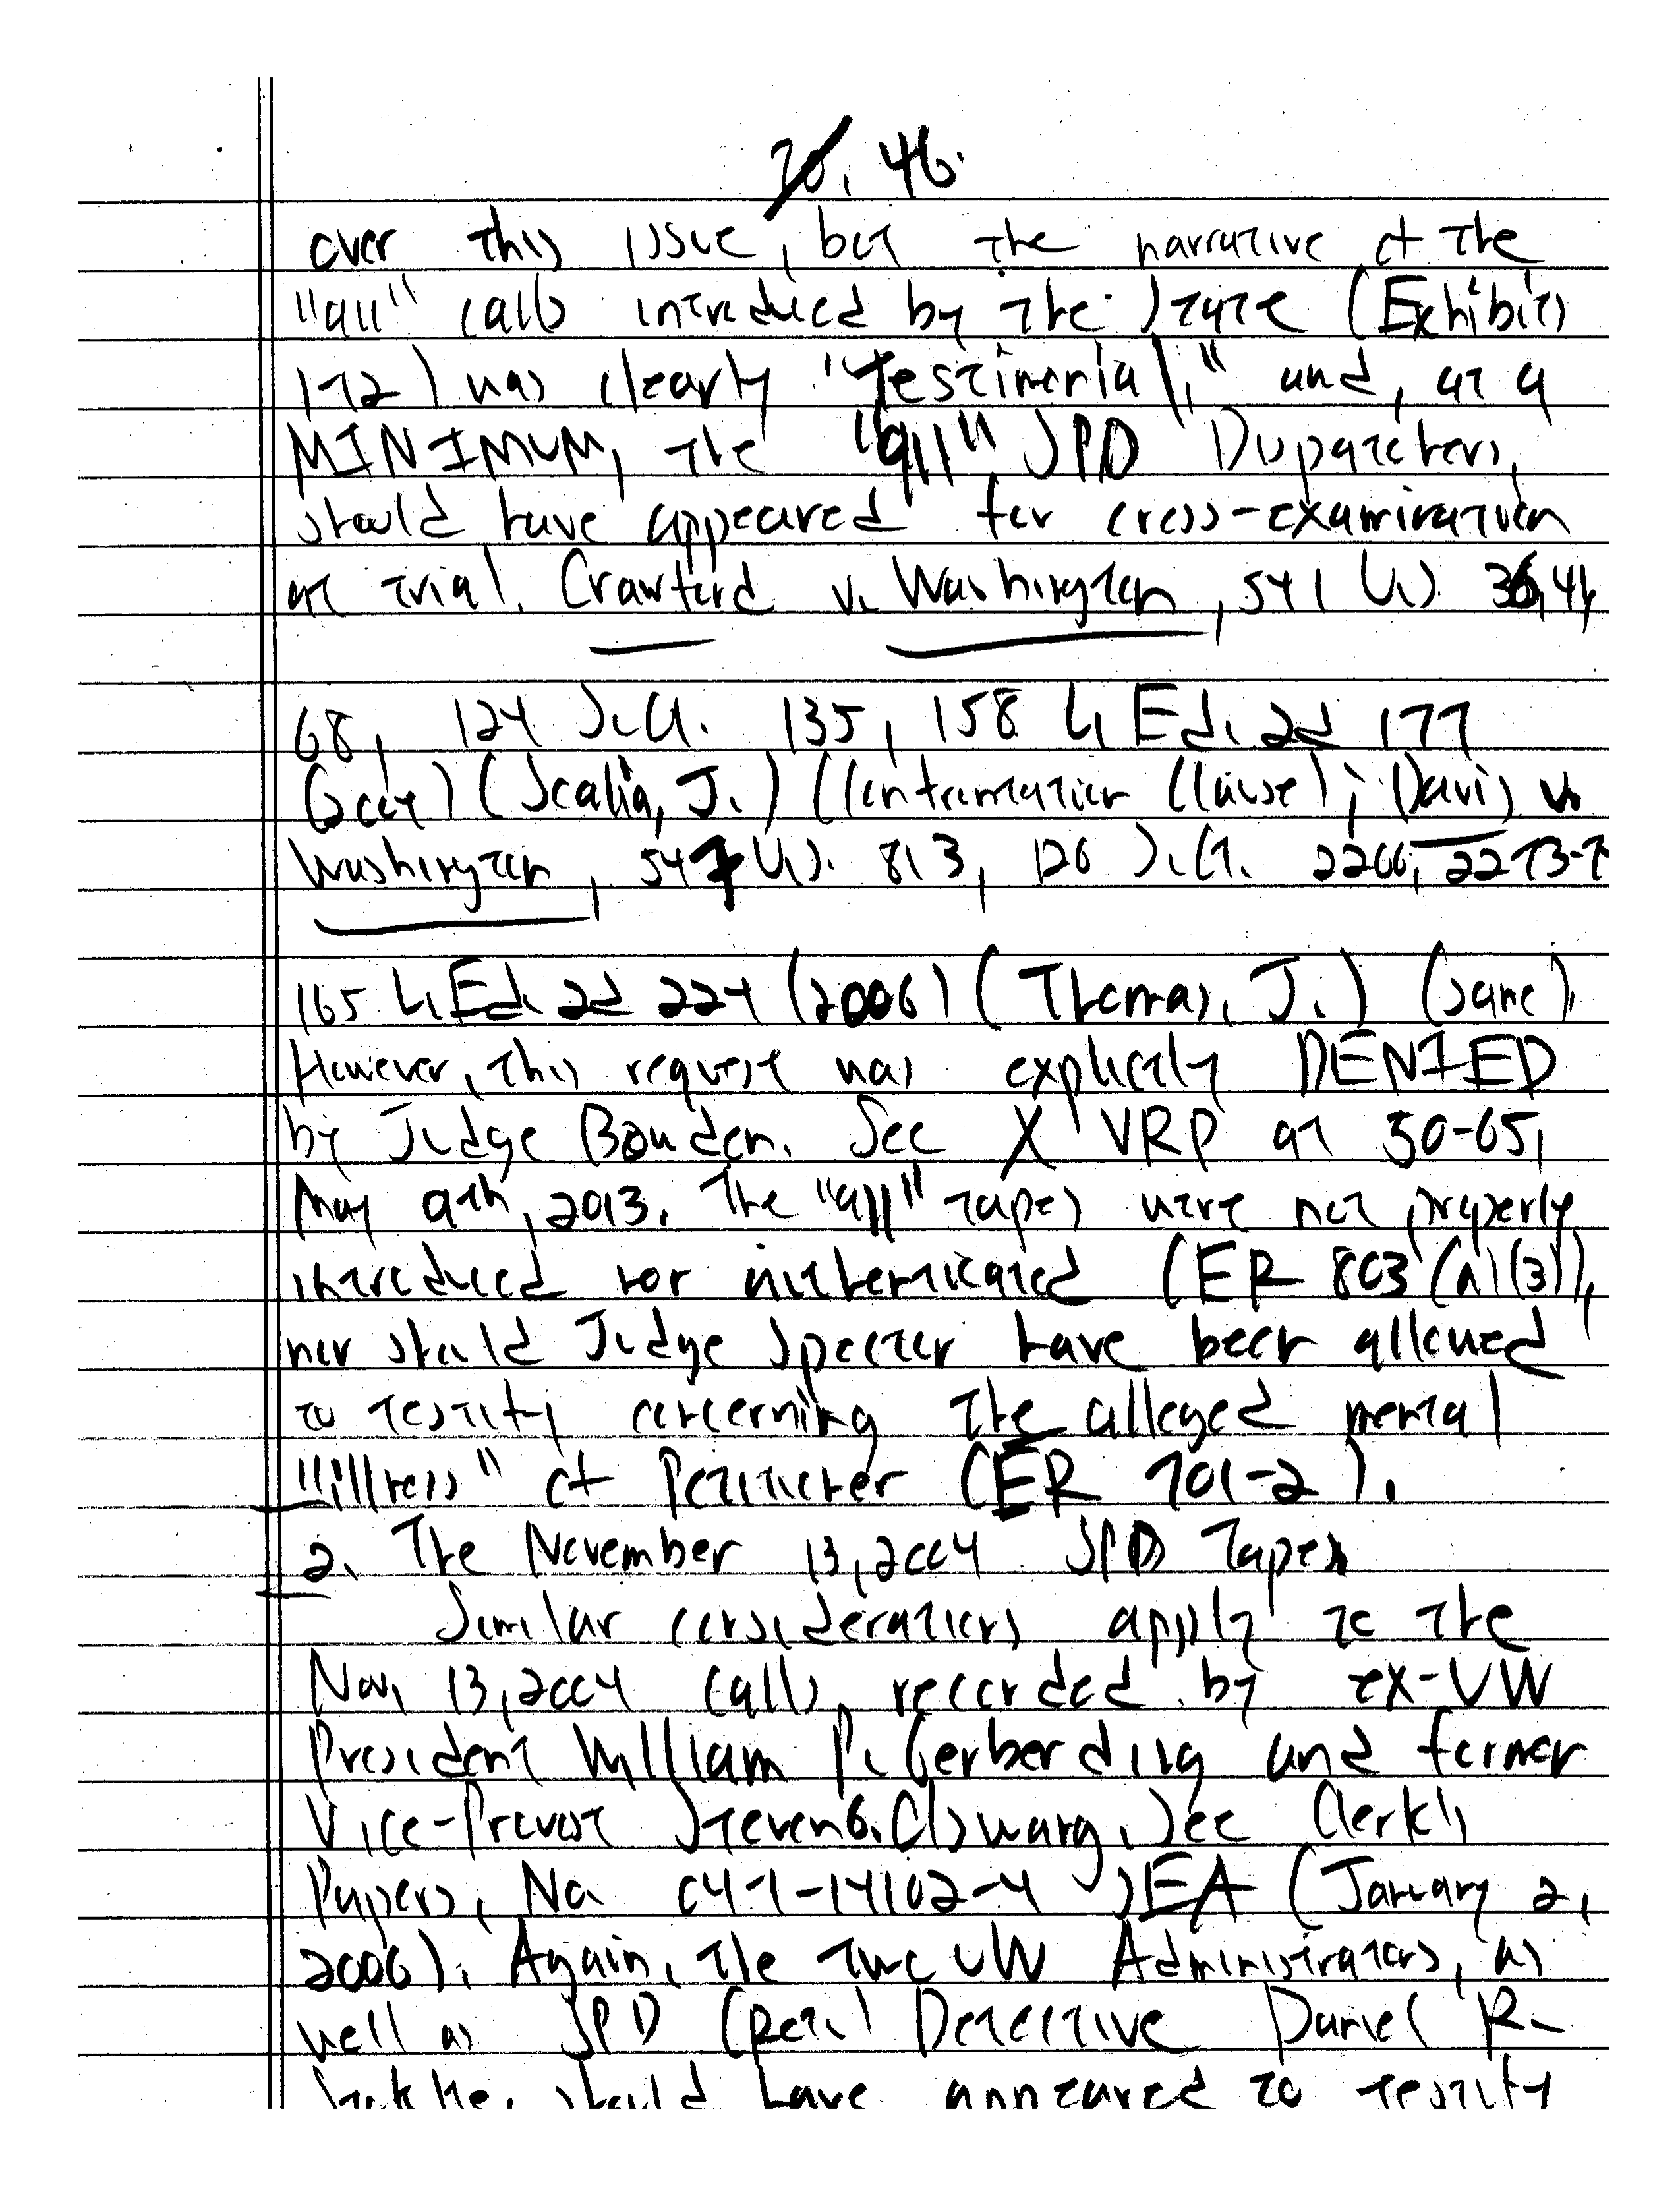 46.
over this issue, but the narrative of the
"911" calls introduced by the State (Exhibits
1-2) was clearly "Testimonial," and, at a
MINIMUM, the "911" SPD Dispatchers,
should have appeared for cross-examination
at trial. Crawford v. Washington, 541 U.S. 36, 41,
68, 124 S.Ct. 135, 158 L.Ed.2d 177
(2004) (Scalia, J.) (Confrontation Clause); Davis v.
Washington, 547 U.S. 813, 126 S.Ct. 2266, 2273-7
165 L.Ed.2d 224 (2006) (Thomas, J.) (same).
However, this request was explicitly DENIED
by Judge Bowden. See X VRP at 50-65,
May 9th, 2013. The "911" tapes were not properly
introduced nor authenticated (ER 803(a)(3)),
nor should Judge Spector have been allowed
to testify concerning the alleged mental
"illness" of Petitioner (ER 701-2).
2. The November 13, 2004 SPD Tapes
Similar considerations apply to the
Nov. 13, 2004 calls, recorded by ex-UW
President William P. Gerberding and former
Vice-Provost Steven G. Olswang. See Clerk's
Papers, No. 04-1-14102-4 SEA (January 2,
2006). Again, the two UW Administrators, as
well as SPD (Det.) Detective Daniel R.
should have appeared to testify